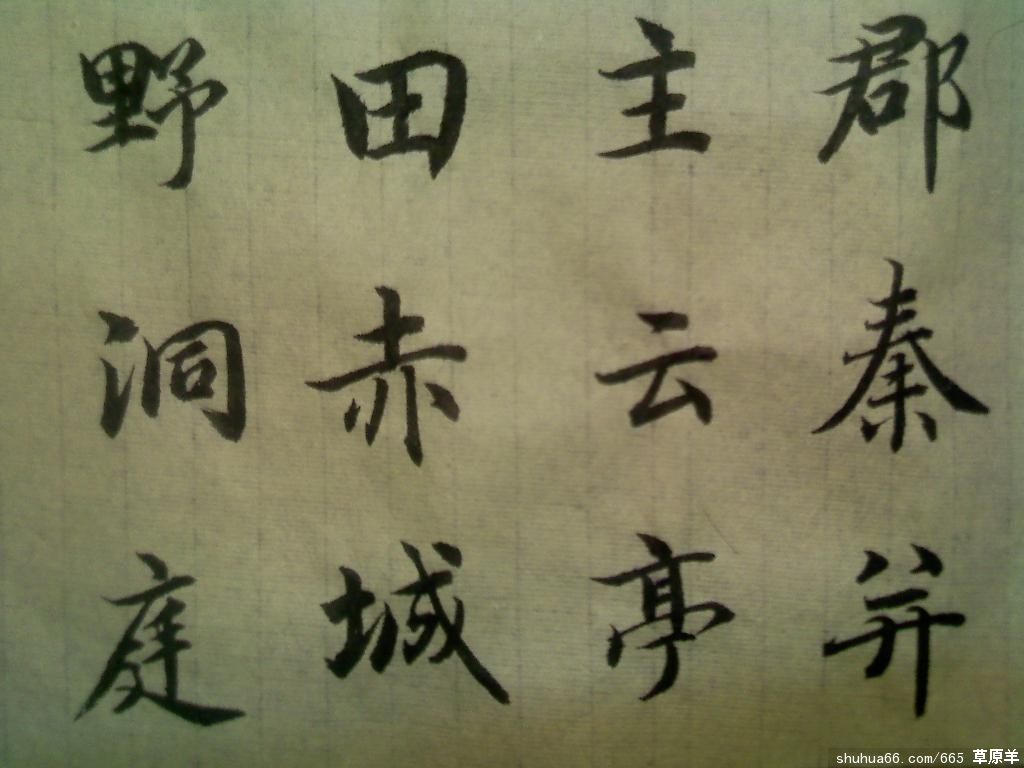 郡秦并
主云亭
田赤城
野洞庭
shuhua66.com/665 草原羊